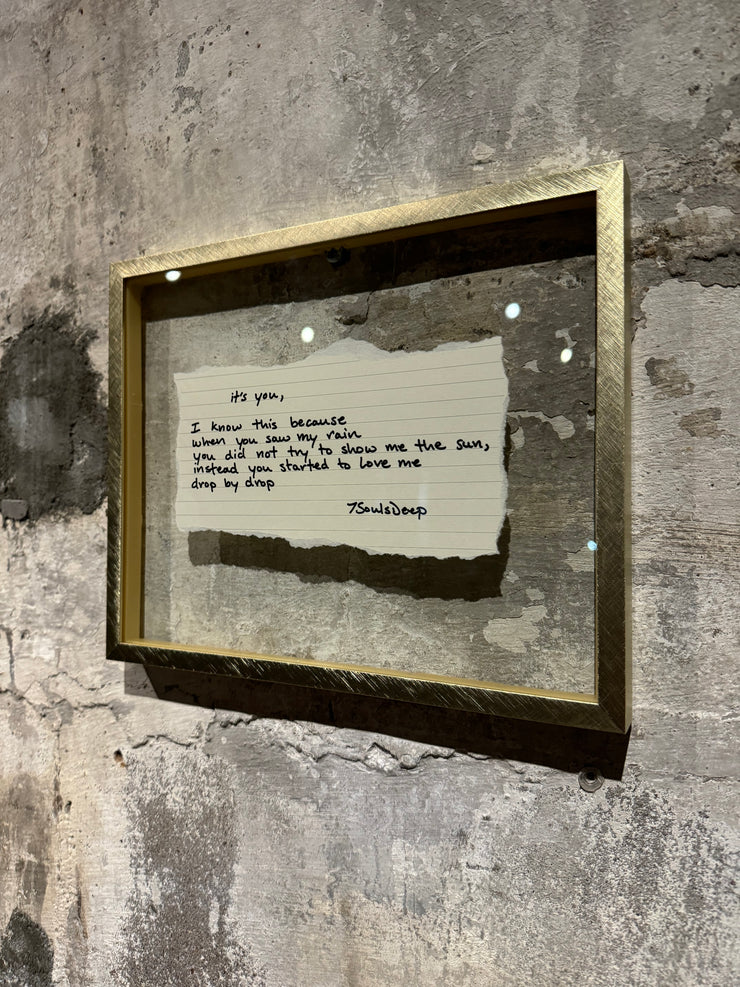 it's you,
I know this because
when you saw my rain
you did not try to show me the sun,
instead you started to love me
drop by drop
7SoulsDeep